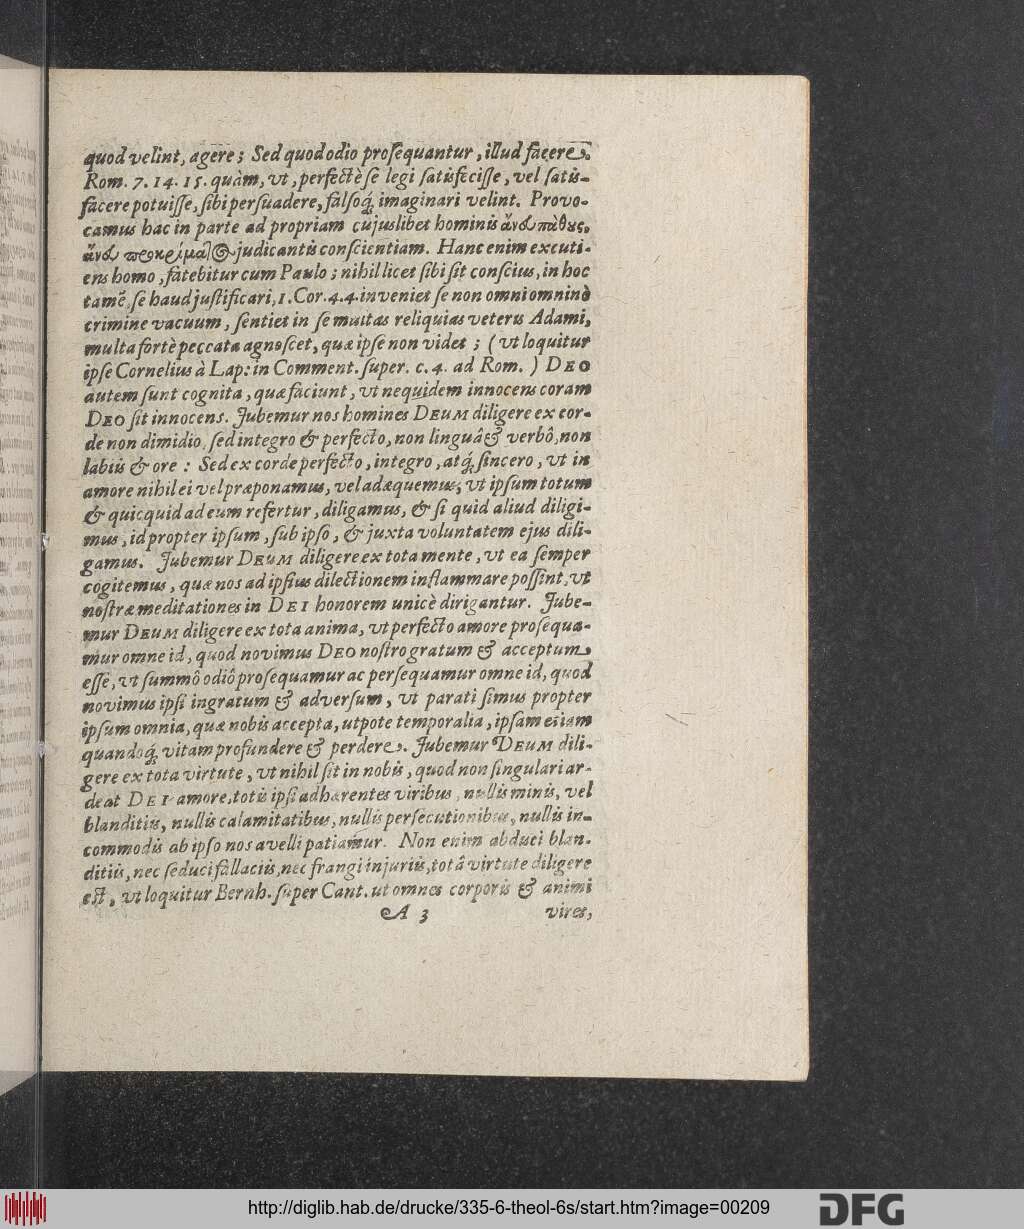 quod velint, agere; Sed quod odio proſequantur, illud facere.
Rom. 7. 14. 15. quàm, vt, perfectè ſe legi ſatisfeciſſe, vel ſatis-
facere potuiſſe, ſibi perſuadere, falſoq́; imaginari velint. Provo-
camus hac in parte ad propriam cujuslibet hominis ἄνευ πάθους,
ἄνευ προκρίματος judicantis conſcientiam. Hanc enim excuti-
ens homo, fatebitur cum Paulo; nihil licet ſibi ſit conſcius, in hoc
tamẽ ſe haud juſtificari, 1. Cor. 4. 4. inveniet ſe non omni omninò
crimine vacuum, ſentiet in ſe multas reliquias veteris Adami,
multa fortè peccata agnoſcet, quæ ipſe non videt; (vt loquitur
ipſe Cornelius à Lap: in Comment. ſuper. c. 4. ad Rom.) DEO
autem ſunt cognita, quæ faciunt, vt nequidem innocens coram
DEO ſit innocens. Jubemur nos homines DEUM diligere ex cor-
de non dimidio, ſed integro & perfecto, non linguâ & verbô, non
labiis & ore: Sed ex corde perfecto, integro, atq́; ſincero, vt in
amore nihil ei vel præponamus, vel adæquemus, vt ipſum totum
& quicquid ad eum refertur, diligamus, & ſi quid aliud diligi-
mus, id propter ipſum, ſub ipſo, & juxta voluntatem ejus dili-
gamus. Jubemur DEUM diligere ex tota mente, vt ea ſemper
cogitemus, quæ nos ad ipſius dilectionem inflammare poſſint, vt
noſtræ meditationes in DEI honorem unicè dirigantur. Jube-
mur DEUM diligere ex tota anima, vt perfecto amore proſequa-
mur omne id, quod novimus DEO noſtro gratum & acceptum
eſſe, vt ſummô odiô proſequamur ac perſequamur omne id, quod
novimus ipſi ingratum & adverſum, vt parati ſimus propter
ipſum omnia, quæ nobis accepta, utpote temporalia, ipſam etiam
quandoq́; vitam profundere & perdere. Jubemur DEUM dili-
gere ex tota virtute, vt nihil ſit in nobis, quod non ſingulari ar-
deat DEI amore, totis ipſi adhærentes viribus, nullis minis, vel
blanditiis, nullis calamitatibus, nullis perſecutionibus, nullis in-
commodis ab ipſo nos avelli patiamur. Non enim abduci blan-
ditiis, nec ſeduci fallaciis, nec frangi injuriis, totâ virtute diligere
eſt, vt loquitur Bernh. ſuper Cant. ut omnes corporis & animi
A 3 vires,
http://diglib.hab.de/drucke/335-6-theol-6s/start.htm?image=00209
DFG